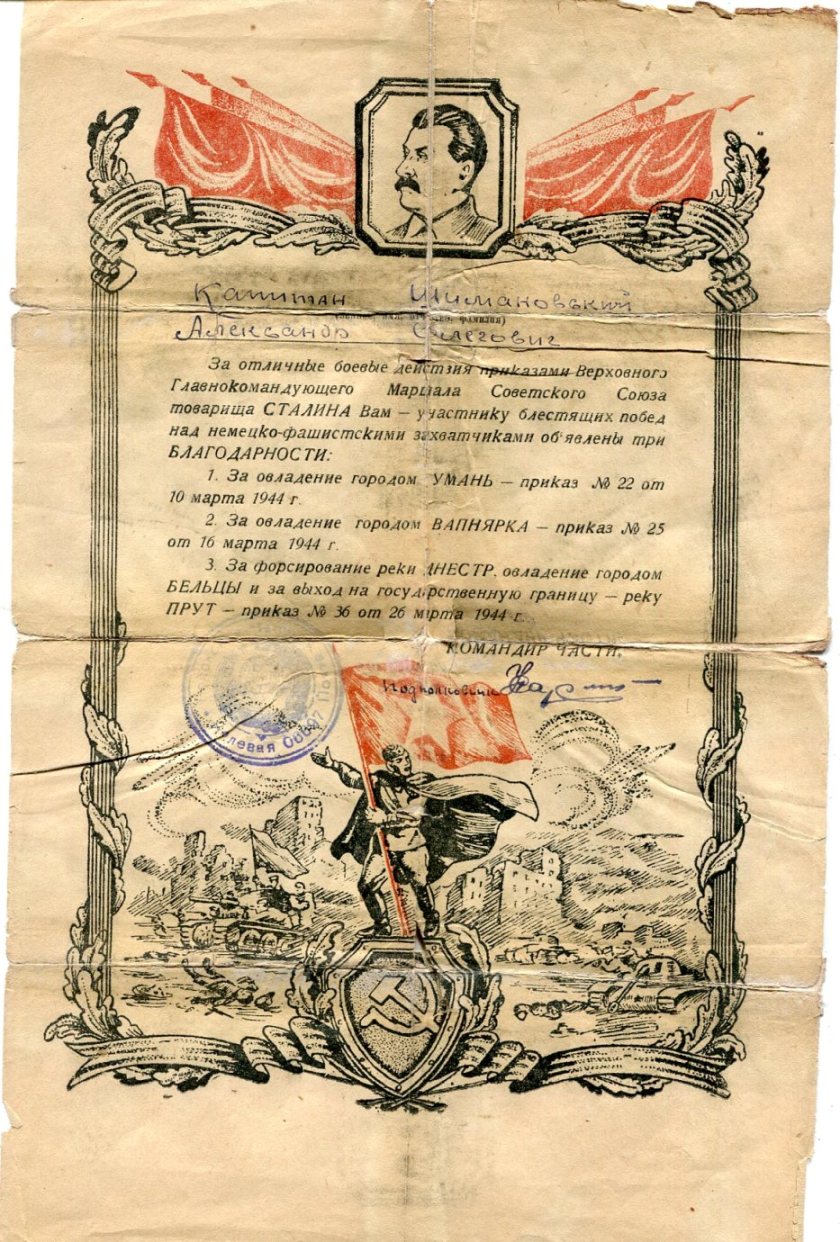 Капитан Шимановський
фамилия)
Александр Олегович
За отличные боевые действия приказами Верховного
Главнокомандующего Маршала Советского Союза
товарища СТАЛИНА Вам — участнику блестящих побед
над немецко-фашистскими захватчиками об'явлены три
БЛАГОДАРНОСТИ:
1. За овладение городом УМАНЬ — приказ № 22 от
10 марта 1944 г.
2. За овладение городом ВАПНЯРКА — приказ № 25
от 16 марта 1944 г.
3. За форсирование реки ДНЕСТР, овладение городом
БЕЛЬЦЫ и за выход на государственную границу — реку
ПРУТ — приказ № 36 от 26 марта 1944 г.
КОМАНДИР ЧАСТИ,
Подполковник
левая 06697